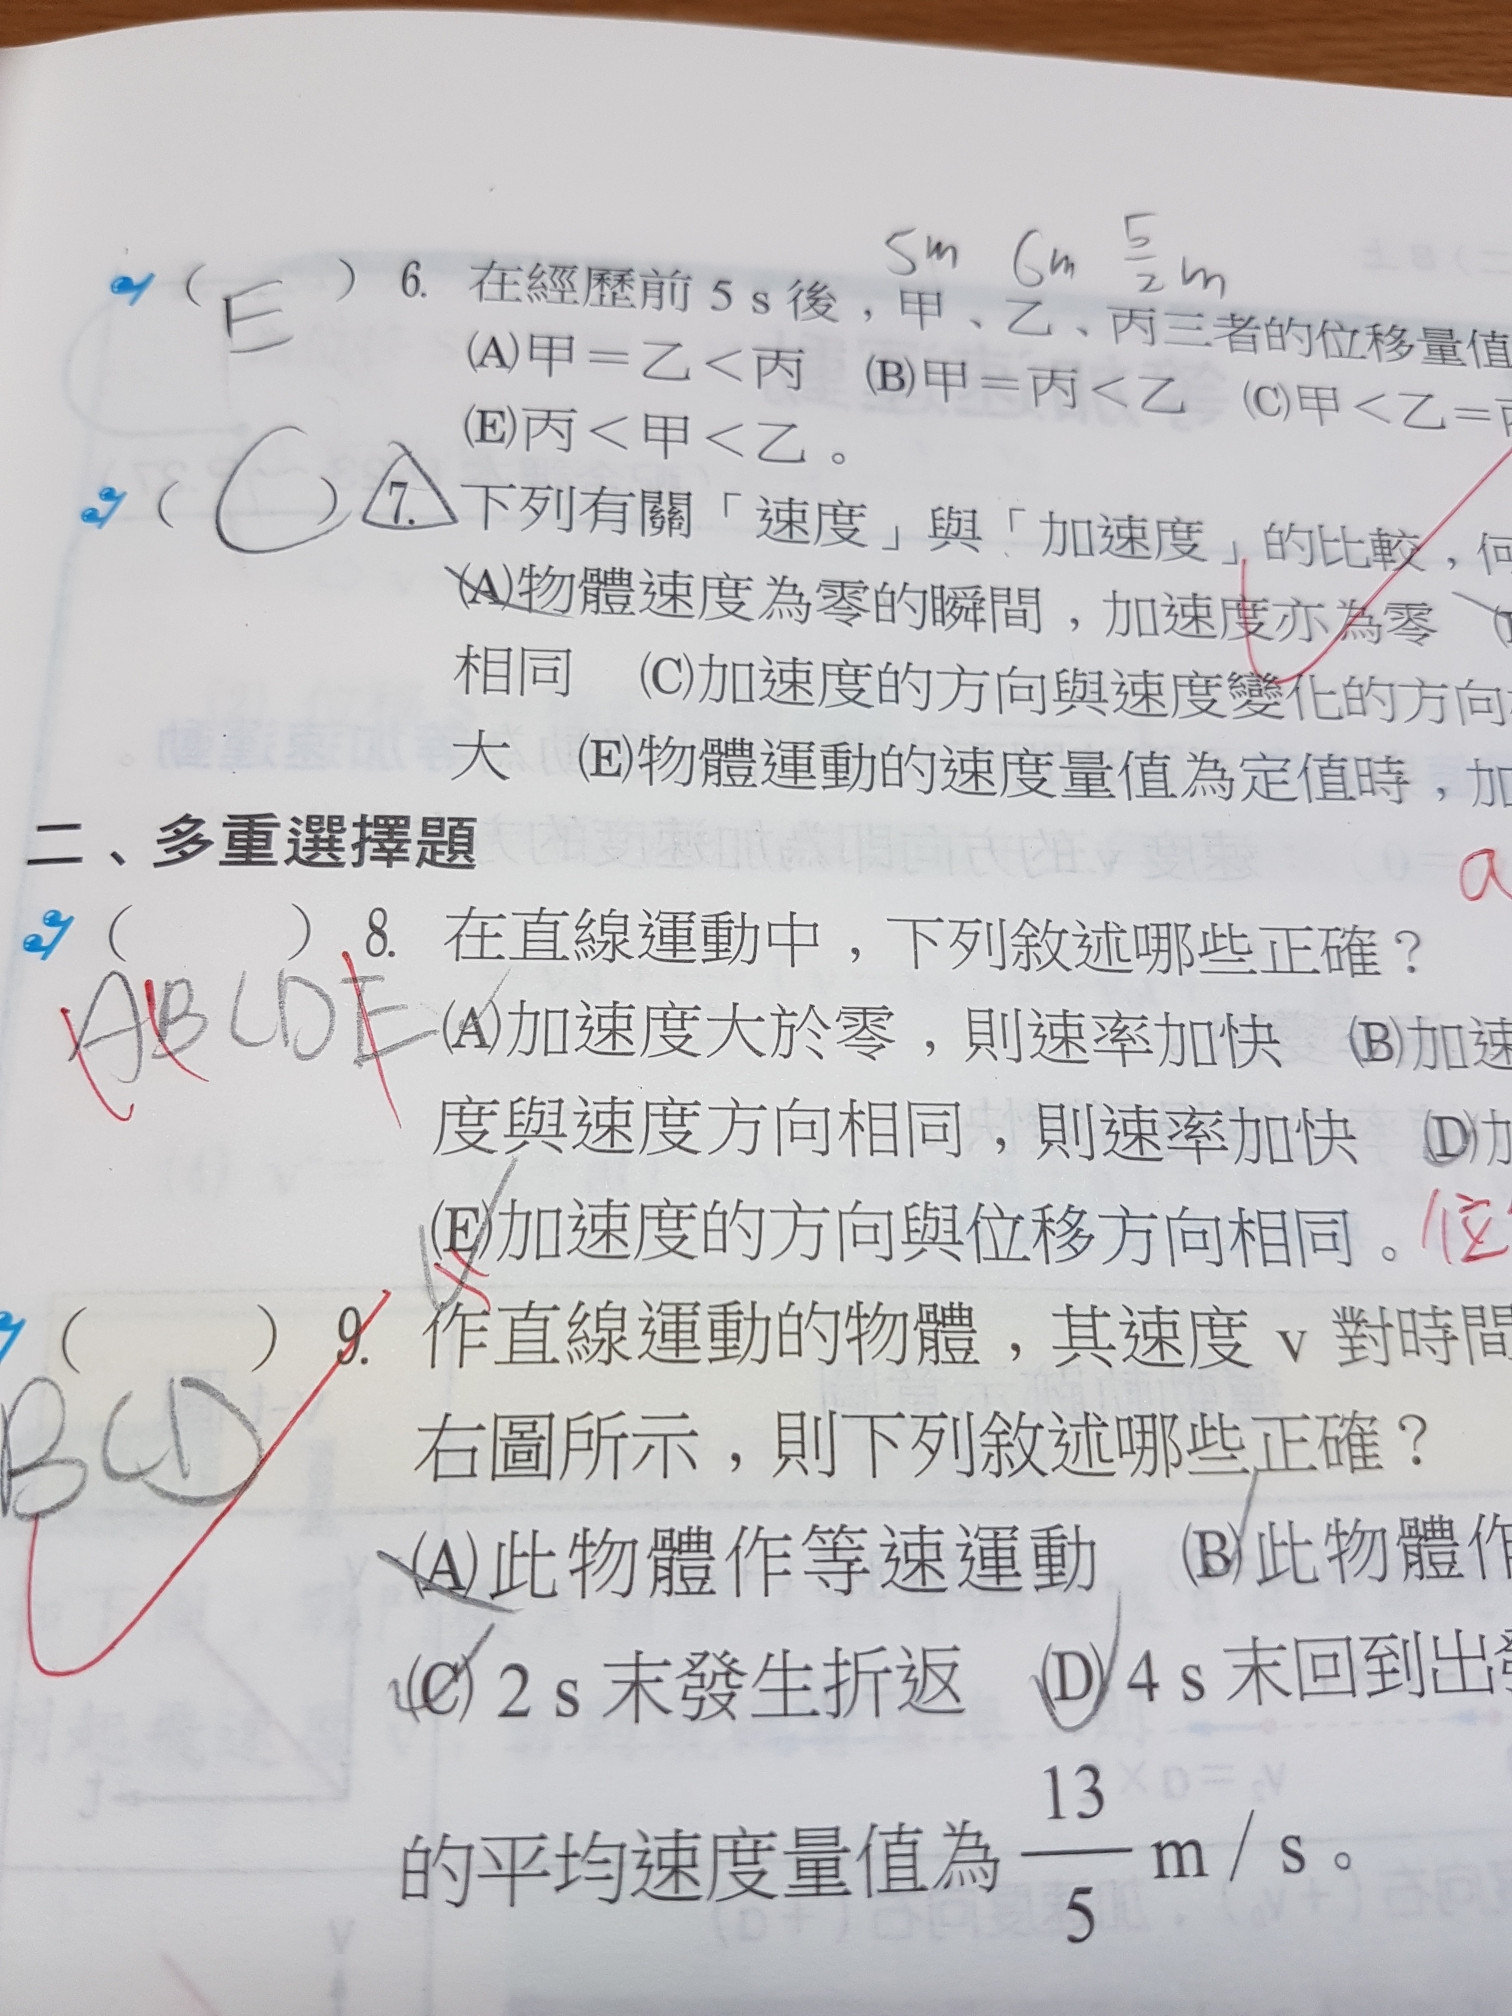 5m 6m 5/2 m
( E ) 6. 在經歷前 5 s 後，甲、乙、丙三者的位移量值
(A)甲＝乙＜丙 (B)甲＝丙＜乙 (C)甲＜乙＝丙
(E)丙＜甲＜乙。
( C ) 7. 下列有關「速度」與「加速度」的比較，何
(A)物體速度為零的瞬間，加速度亦為零
相同 (C)加速度的方向與速度變化的方向
大 (E)物體運動的速度量值為定值時，加
二、多重選擇題
a
( ) 8. 在直線運動中，下列敘述哪些正確？
ABCDE
(A)加速度大於零，則速率加快 (B)加速
度與速度方向相同，則速率加快 (D)加
(E)加速度的方向與位移方向相同。位
( ) 9. 作直線運動的物體，其速度 v 對時間
BCD
右圖所示，則下列敘述哪些正確？
(A)此物體作等速運動 (B)此物體作
(C) 2 s 末發生折返 (D) 4 s 末回到出發
的平均速度量值為 13/5 m / s。